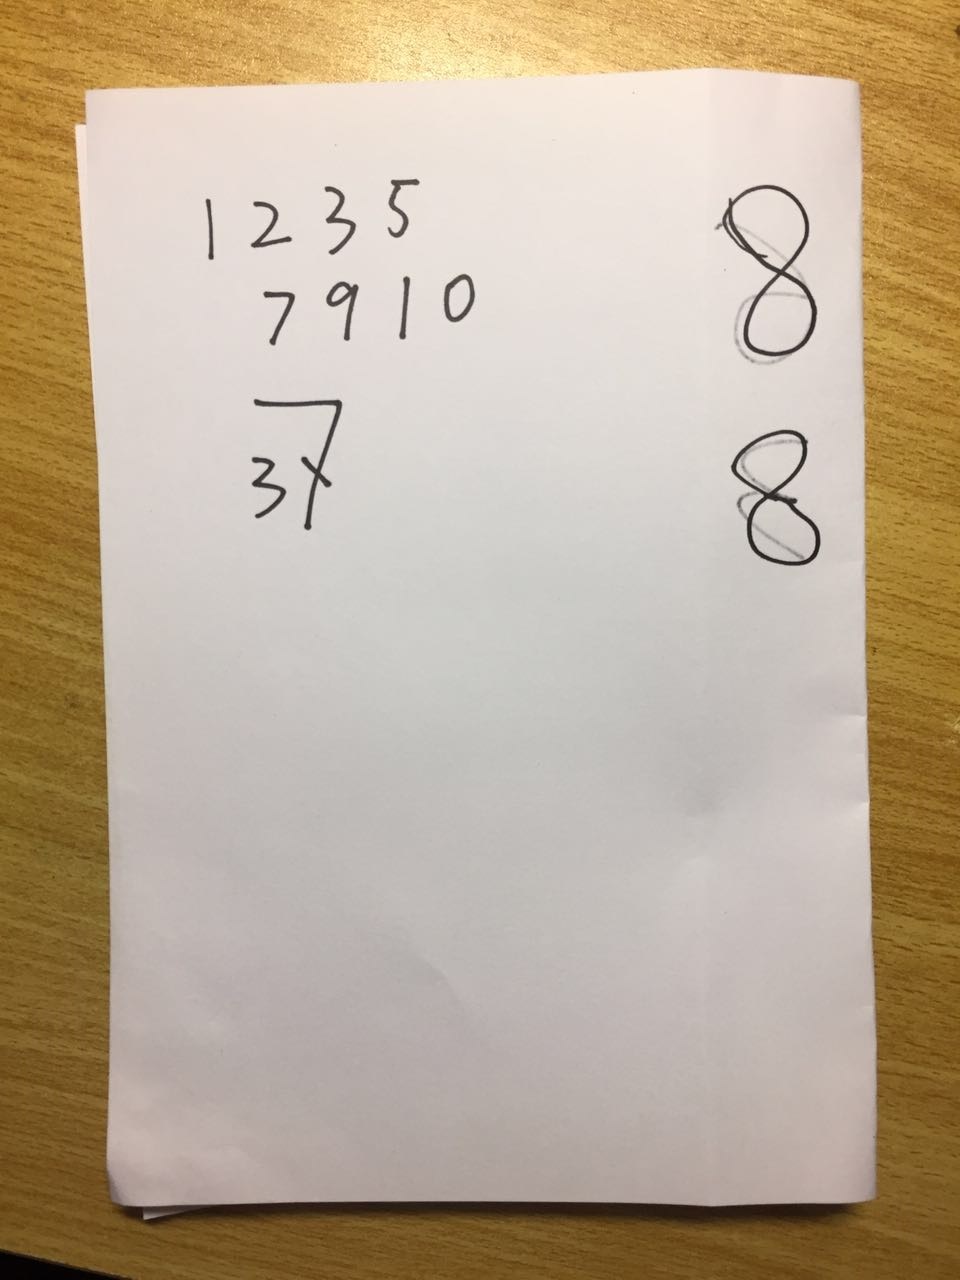 1 2 3 5
7 9 1 0
37
8
8